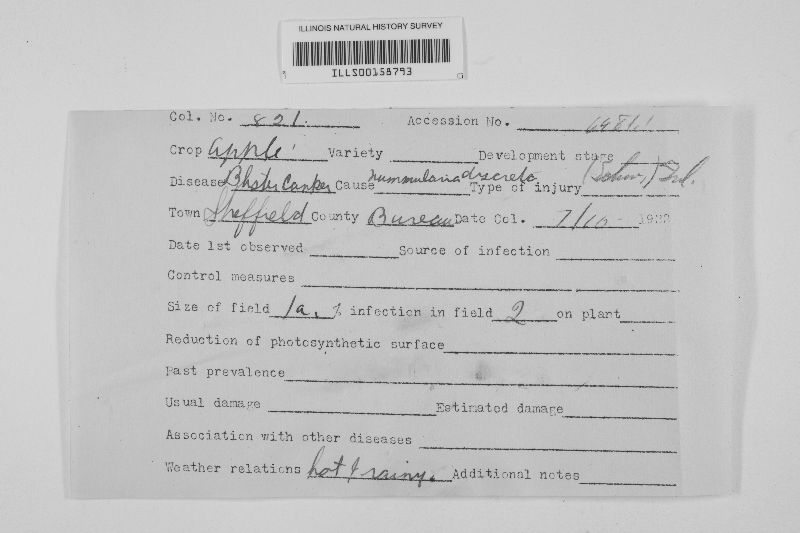 ILLINOIS NATURAL HISTORY SURVEY
ILLS00158793
Col. No. 821. Accession No.
Crop apple Variety Development stage
Disease Blister Canker Cause nummularia discreta Type of injury (Schw.) Tul.
Town Sheffield County Bureau Date Col. 7/10 192
Date 1st observed Source of infection
Control measures
Size of field 1a. % infection in field 2 on plant
Reduction of photosynthetic surface
Past prevalence
Usual damage Estimated damage
Association with other diseases
Weather relations hot & rainy. Additional notes